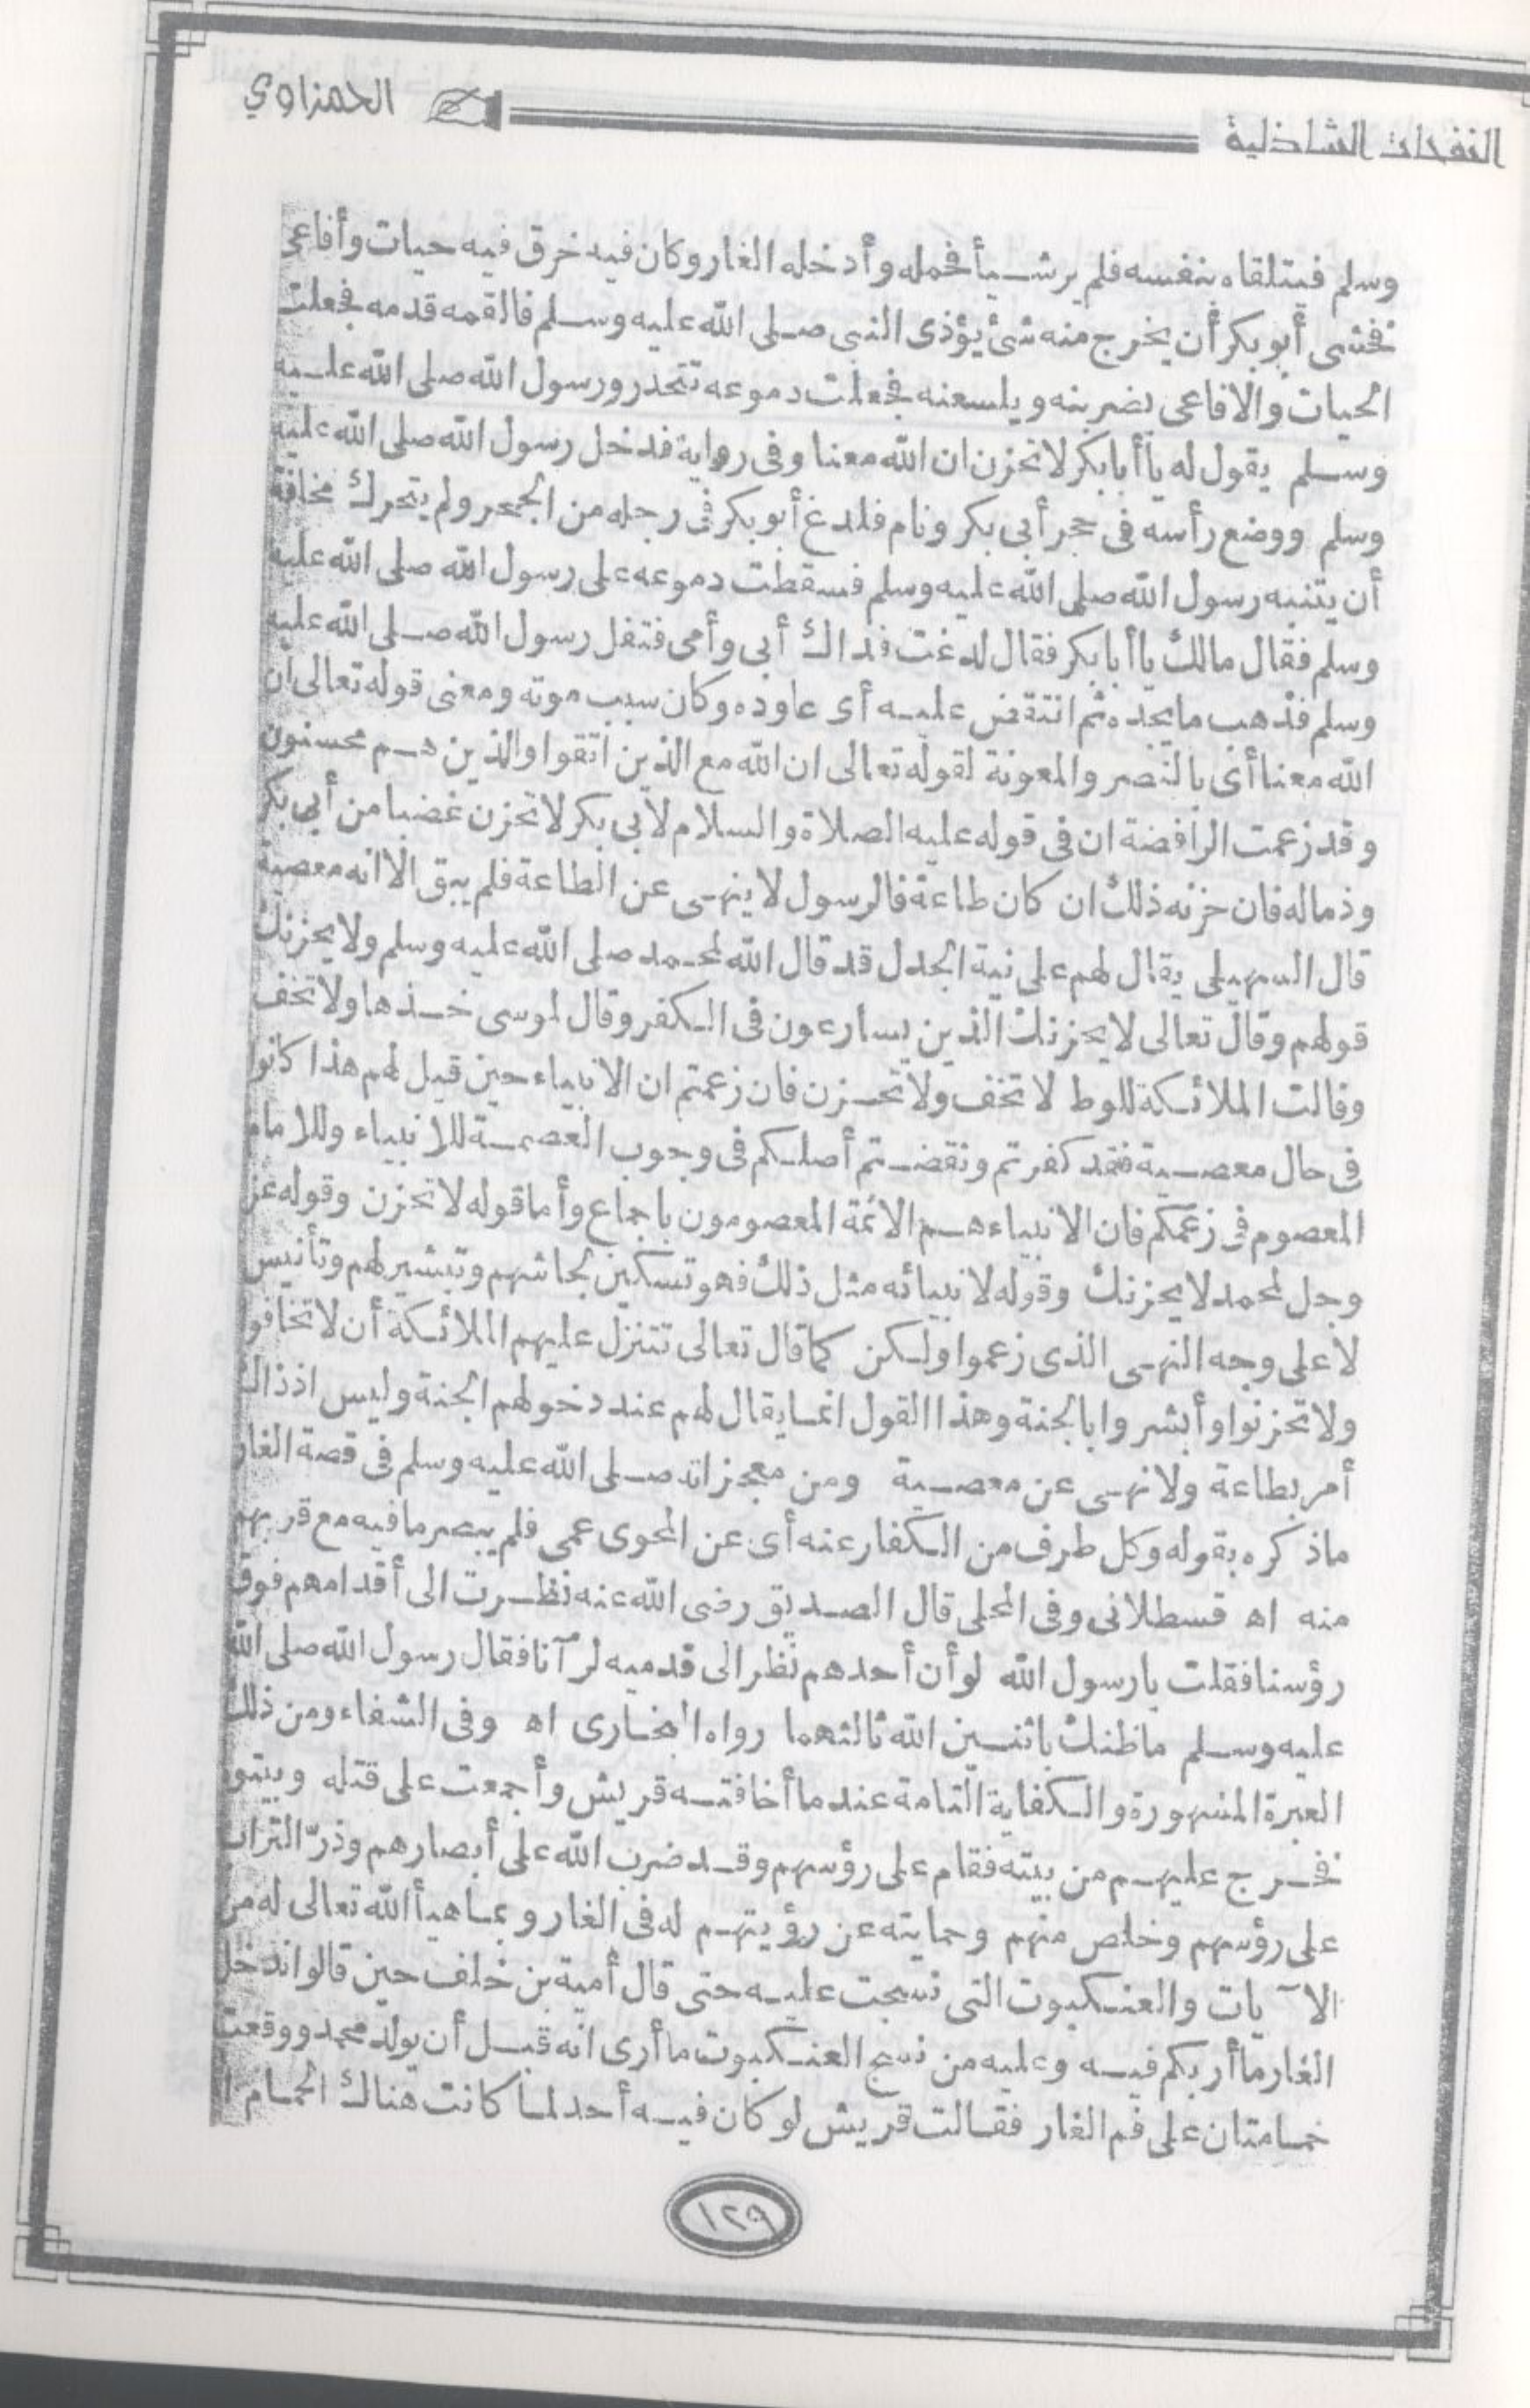 النفحات الشاذلية
الحمزاوي
وسلم فيتلقاه بنفسه فلم ير شيأ فحمله وأدخله الغار وكان فيه خرق فيه حيات وأفاعى
فخشى أبو بكر أن يخرج منه شئ يؤذى النبى صلى الله عليه وسلم فألقمه قدمه فجعلت
الحيات والافاعى يضربنه ويلسعنه فجعلت دموعه تتحدر ورسول الله صلى الله عليه
وسلم يقول له يا أبا بكر لا تحزن ان الله معنا وفى رواية فدخل رسول الله صلى الله عليه
وسلم ووضع رأسه فى حجر أبى بكر ونام فلدغ أبو بكر فى رجله من الجحر ولم يتحرك مخافة
أن يتنبه رسول الله صلى الله عليه وسلم فسقطت دموعه على رسول الله صلى الله عليه
وسلم فقال مالك يا أبا بكر فقال لدغت فداك أبى وأمى فتفل رسول الله صلى الله عليه
وسلم فذهب ما يجده ثم انتقض عليه أى عاوده وكان سبب موته ومعنى قوله تعالى ان
الله معنا أى بالنصر والمعونة لقوله تعالى ان الله مع الذين اتقوا والذين هم محسنون
وقد زعمت الرافضة ان فى قوله عليه الصلاة والسلام لأبى بكر لا تحزن غضبا من أبى بكر
وذماله فان حزنه ذلك ان كان طاعة فالرسول لا ينهى عن الطاعة فلم يبق الا انه معصية
قال السهيلى يقال لهم على نية الجدل قد قال الله لمحمد صلى الله عليه وسلم ولا يحزنك
قولهم وقال تعالى لا يحزنك الذين يسارعون فى الكفر وقال لموسى خذها ولا تخف
وقالت الملائكة للوط لا تخف ولا تحزن فان زعمتم ان الانبياء حين قيل لهم هذا كانوا
فى حال معصية فقد كفرتم ونقضتم أصلكم فى وجوب العصمة للانبياء وللامام
المعصوم فى زعمكم فان الانبياء هم الائمة المعصومون باجماع وأما قوله لا تحزن وقوله عز
وجل لمحمد لا يحزنك وقوله لانبيائه مثل ذلك فهو تسكين لجاشهم وتبشير لهم وتأنيس
لا على وجه النهى الذى زعموا ولكن كما قال تعالى تتنزل عليهم الملائكة أن لا تخافوا
ولا تحزنوا وأبشروا بالجنة وهذا القول انما يقال لهم عند دخولهم الجنة وليس اذ ذاك
أمر بطاعة ولا نهى عن معصية ومن معجزاته صلى الله عليه وسلم فى قصة الغار
ما ذكره بقوله وكل طرف من الكفار عنه أى عن المحوى عمى فلم يبصر ما فيه مع قربهم
منه اه قسطلانى وفى المحلى قال الصديق رضى الله عنه نظرت الى أقدامهم فوق
رؤسنا فقلت يا رسول الله لو أن أحدهم نظر الى قدميه لرآنا فقال رسول الله صلى الله
عليه وسلم ما ظنك باثنين الله ثالثهما رواه البخارى اه وفى الشفاء ومن ذلك
العبرة المشهورة والكفاية التامة عند ما أخافته قريش وأجمعت على قتله وبيتوه
فخرج عليهم من بيته فقام على رؤسهم وقد ضرب الله على أبصارهم وذرّ التراب
على رؤسهم وخلص منهم وحمايته عن رؤيتهم له فى الغار وبما هيأ الله تعالى له من
الآيات والعنكبوت التى نسجت عليه حتى قال أمية بن خلف حين قالوا ندخل
الغار ما أربكم فيه وعليه من نسج العنكبوت ما أرى انه قبل أن يولد محمد ووقعت
حمامتان على فم الغار فقالت قريش لو كان فيه أحد لما كانت هناك الحمام
١٢٩